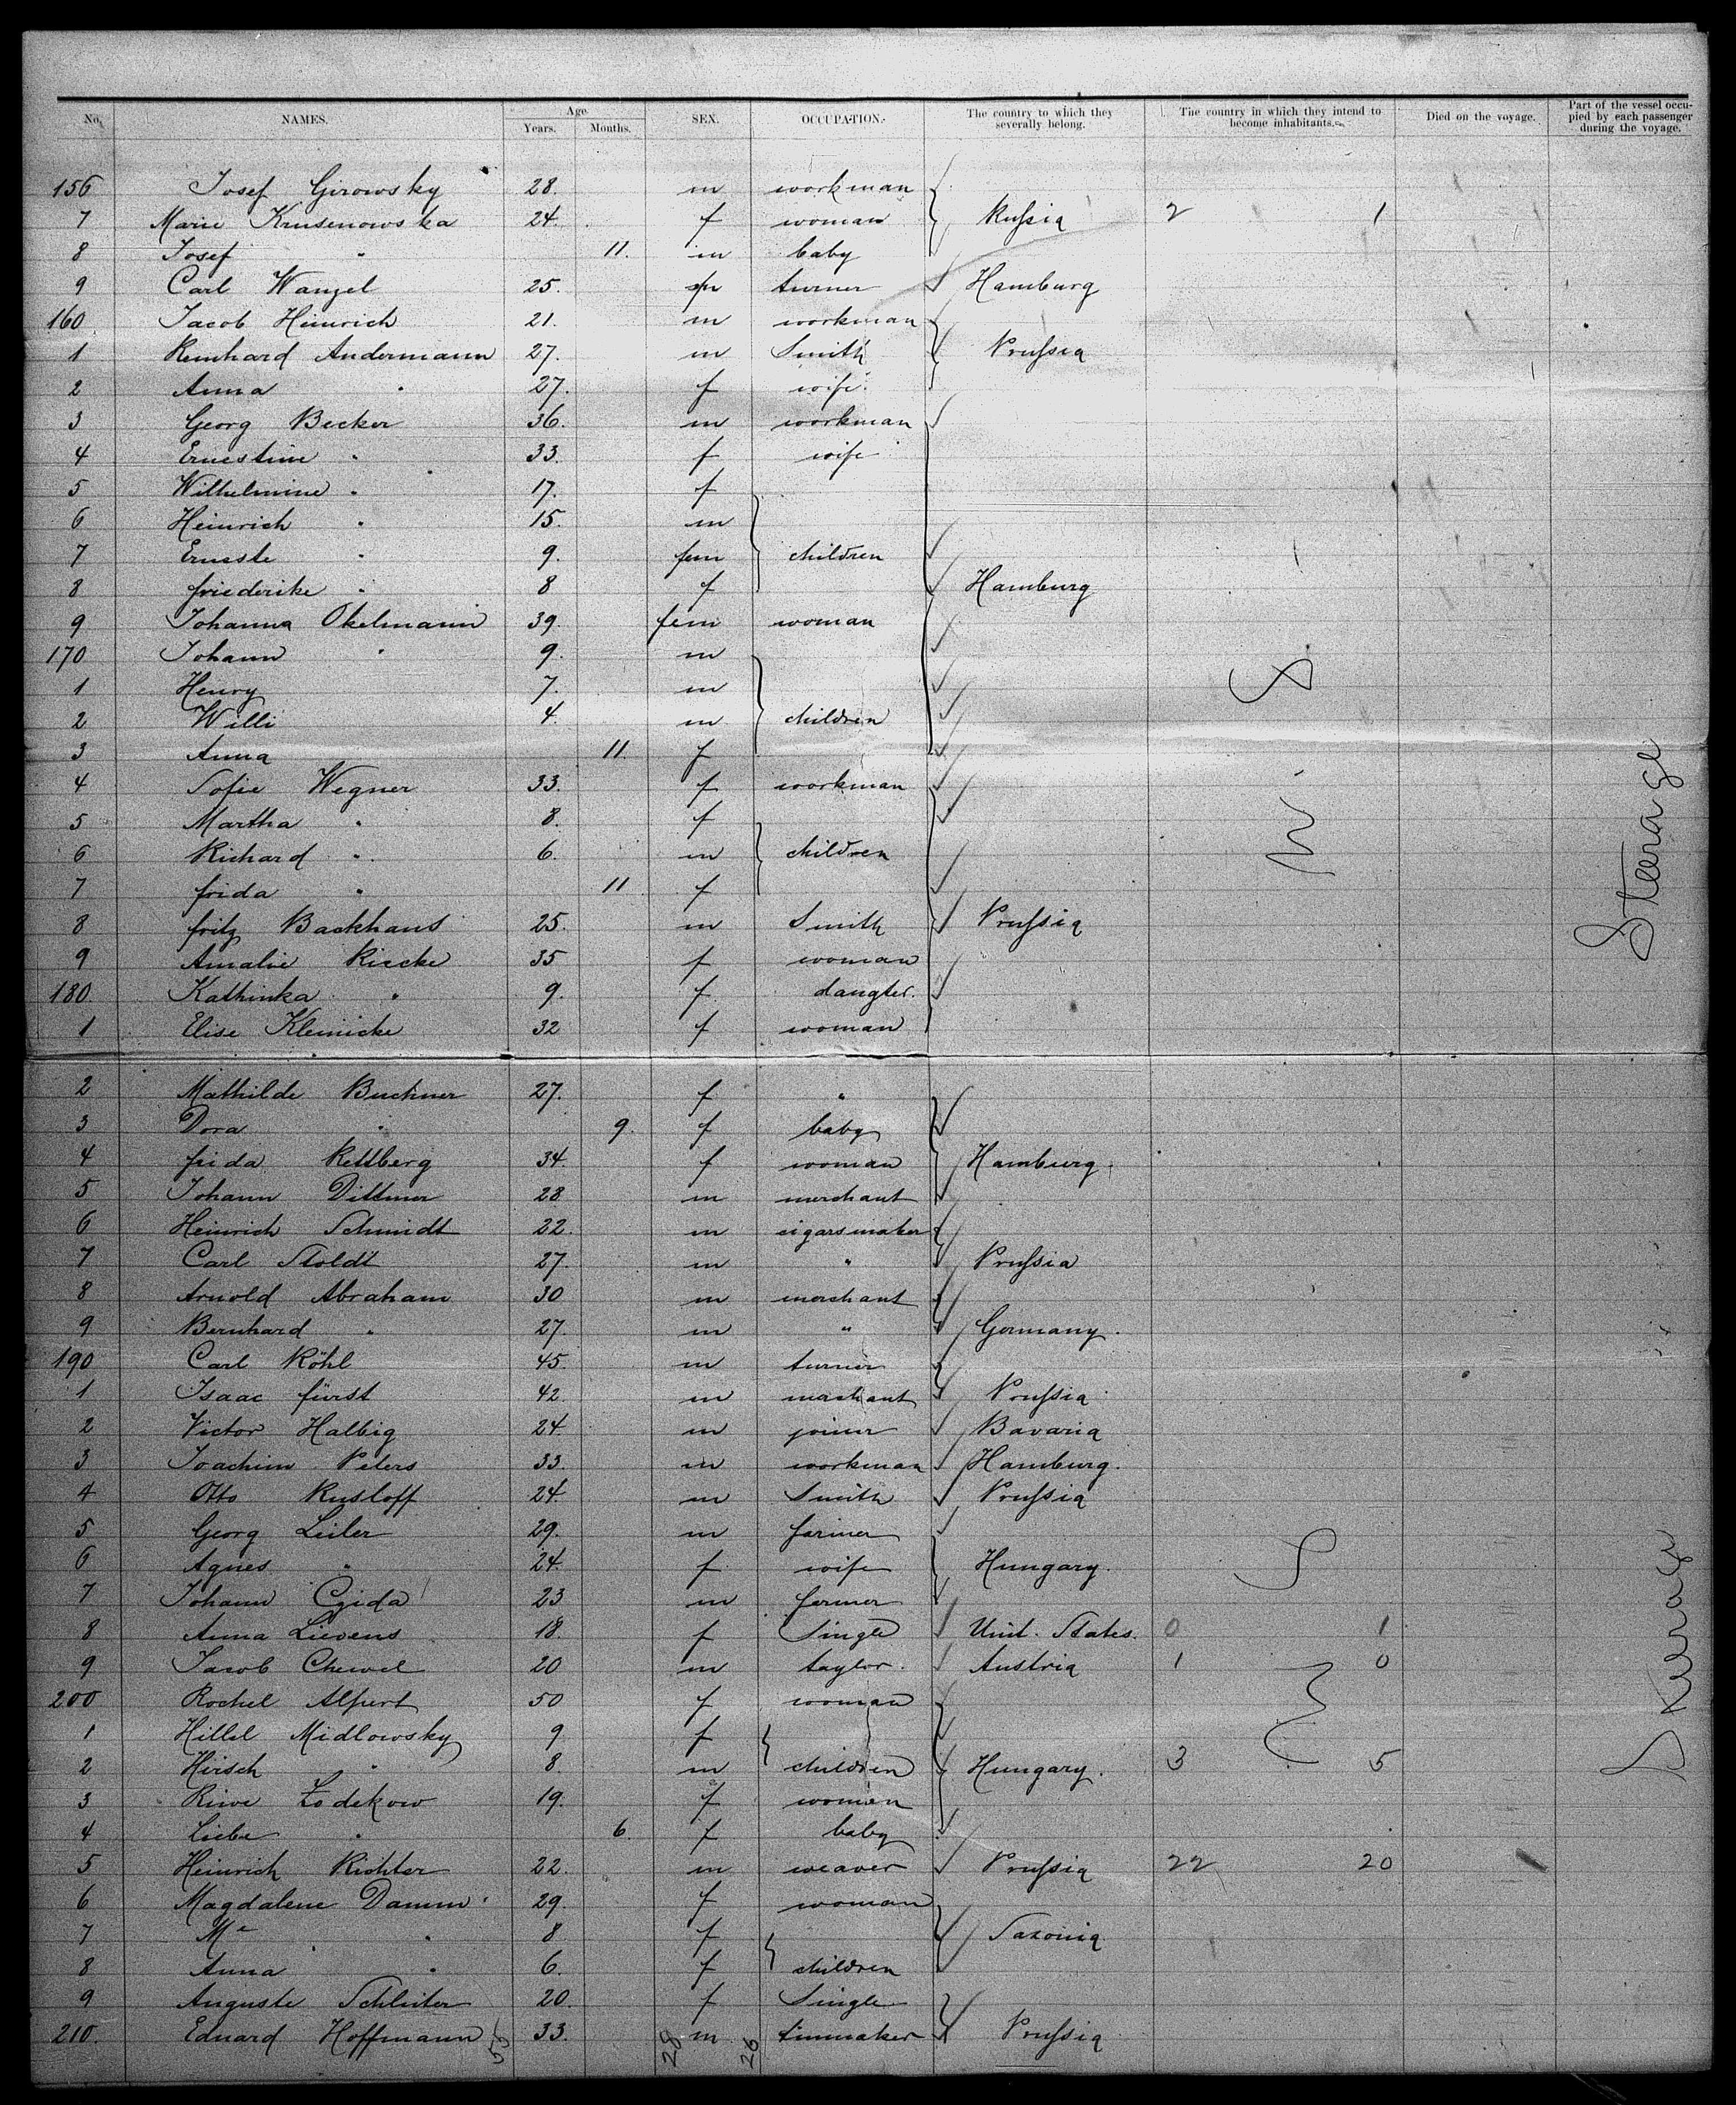 No. NAMES. Age Years. Months. SEX. OCCUPATION. The country to which they severally belong. The country in which they intend to become inhabitants. Died on the voyage. Part of the vessel occupied by each passenger during the voyage.
156 Josef Girowsky 28. m workman
7 Marie Krusenowska 24. f woman Russia 2 1
8 Josef " 11. m baby
9 Carl Wanzel 25. m turner Hamburg
160 Jacob Heinrich 21. m workman
1 Reinhard Andermann 27. m Smith Prussia
2 Anna " 27. f wife
3 Georg Becker 36. m workman
4 Ernestine " 33. f wife
5 Wilhelmine " 17. f
6 Heinrich " 15. m
7 Erneste " 9. fem children
8 Friederike " 8 f Hamburg
9 Johanna Okelmann 39. fem woman
170 Johann " 9. m
1 Henry 7. m
2 Willi 4. m children
3 Anna 11. f
4 Sofie Wegner 33. f workman
5 Martha " 8. f
6 Richard " 6. m children
7 Frida " 11 f
8 Fritz Backhaus 25. m Smith Prussia
9 Amalie Riecke 35 f woman
180. Kathinka " 9. f. daugter.
1 Elise Kleinicke 32 f woman
U S
Steerage
2 Mathilde Buchner 27. f "
3 Dora " 9. f baby
4 Frida Rettberg 34. f woman Hamburg.
5 Johann Dittmer 28 m merchant
6 Heinrich Schmidt 22. m cigarsmaker
7 Carl Stoldt 27. m " Prussia
8 Arnold Abraham 30 m merchant
9 Bernhard " 27. m " Germany.
190 Carl Röhl 45. m turner
1 Isaac Fürst 42. m merchant Prussia
2 Victor Halbig 24. m joiner Bavaria
3 Joachim Peters 33. m workman Hamburg.
4 Otto Rusloff 24. m Smith Prussia
5 Georg Leiler 29. m farmer
6 Agnes " 24. f wife Hungary.
7 Johann Czida 23 m farmer
8 Anna Lievens 18. f Single Unit. States. 0 1
9 Jacob Chewel 20 m taylor. Austria 1 0
200 Rochel Alpert 50 f woman
1 Hillel Midlowsky 9 f
2 Hirsch " 8. m children Hungary. 3 5
3 Riwe Lodekow 19. f women
4 Liebe " 6. f baby
5 Heinrich Richter 22. m weaver Prussia 22 20
6 Magdalene Damm 29. f woman
7 Ma " 8 f Saxonia
8 Anna " 6. f children
9 Auguste Schlüter 20. f Single
210. Eduard Hoffmann 33. m tinmaker Prussia
55 28 26